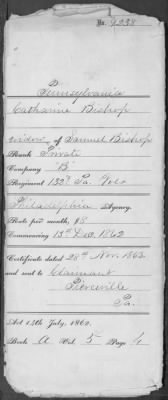 No. 9238
Pennsylvania
Catharine Bishop
widow of Samuel Bishop
Rank Private
Company "B"
Regiment 132d Pa. Vols
Philadelphia Agency.
Rate per month, $8
Commencing 13th Dec. 1862
Certificate dated 28th Nov. 1863
and sent to Claimant
Pierceville
Pa.
Act 14th July, 1862.
Book A Vol. 5 Page 4